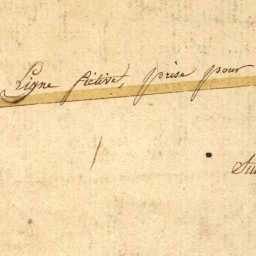 Ligne fictive, prise pour